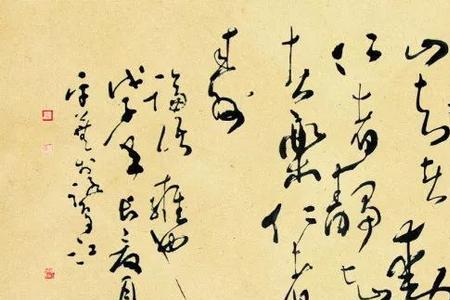 山知者動
仁者靜知
者樂仁者
壽
論語雍也
戊子年長夏月
江